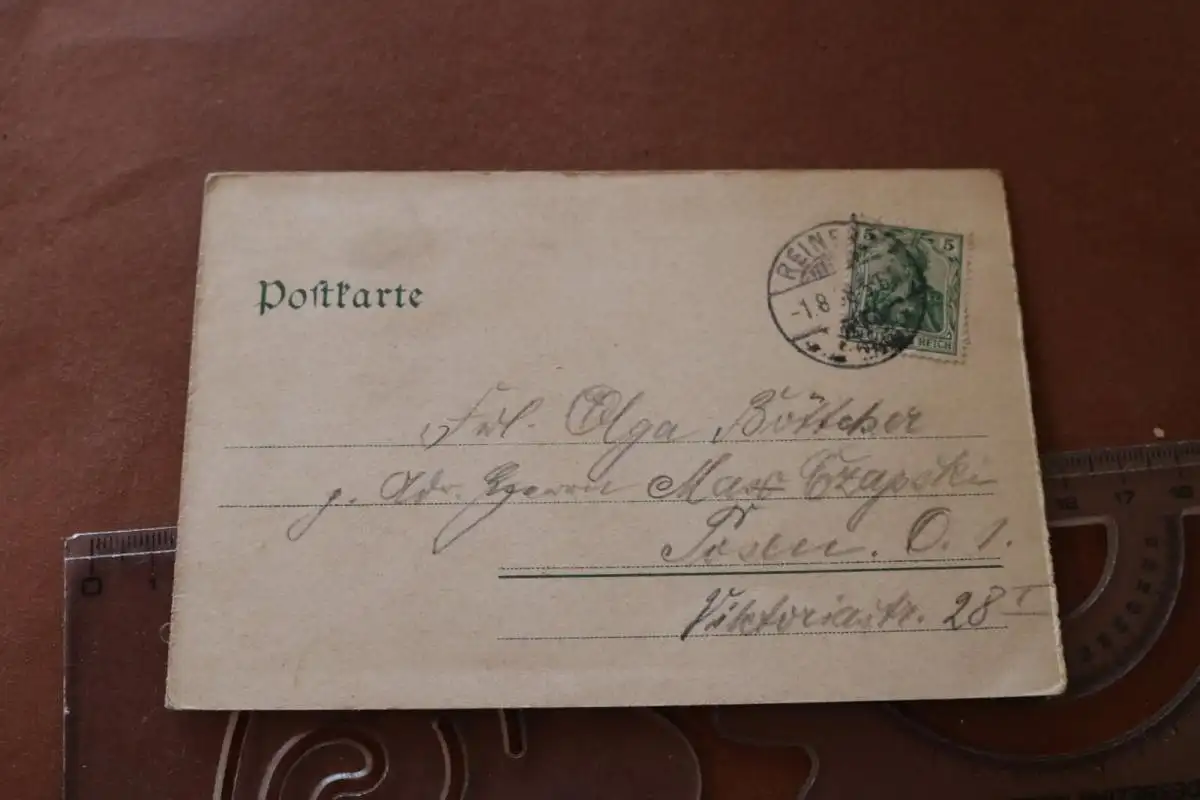 Postkarte
REINE
-1.8
5 5
REICH
Frl. Olga Böttcher
p. Adr. Herrn Max Czapski
Posen. O. 1.
Viktoriastr. 28 I
0 1
16 17 18